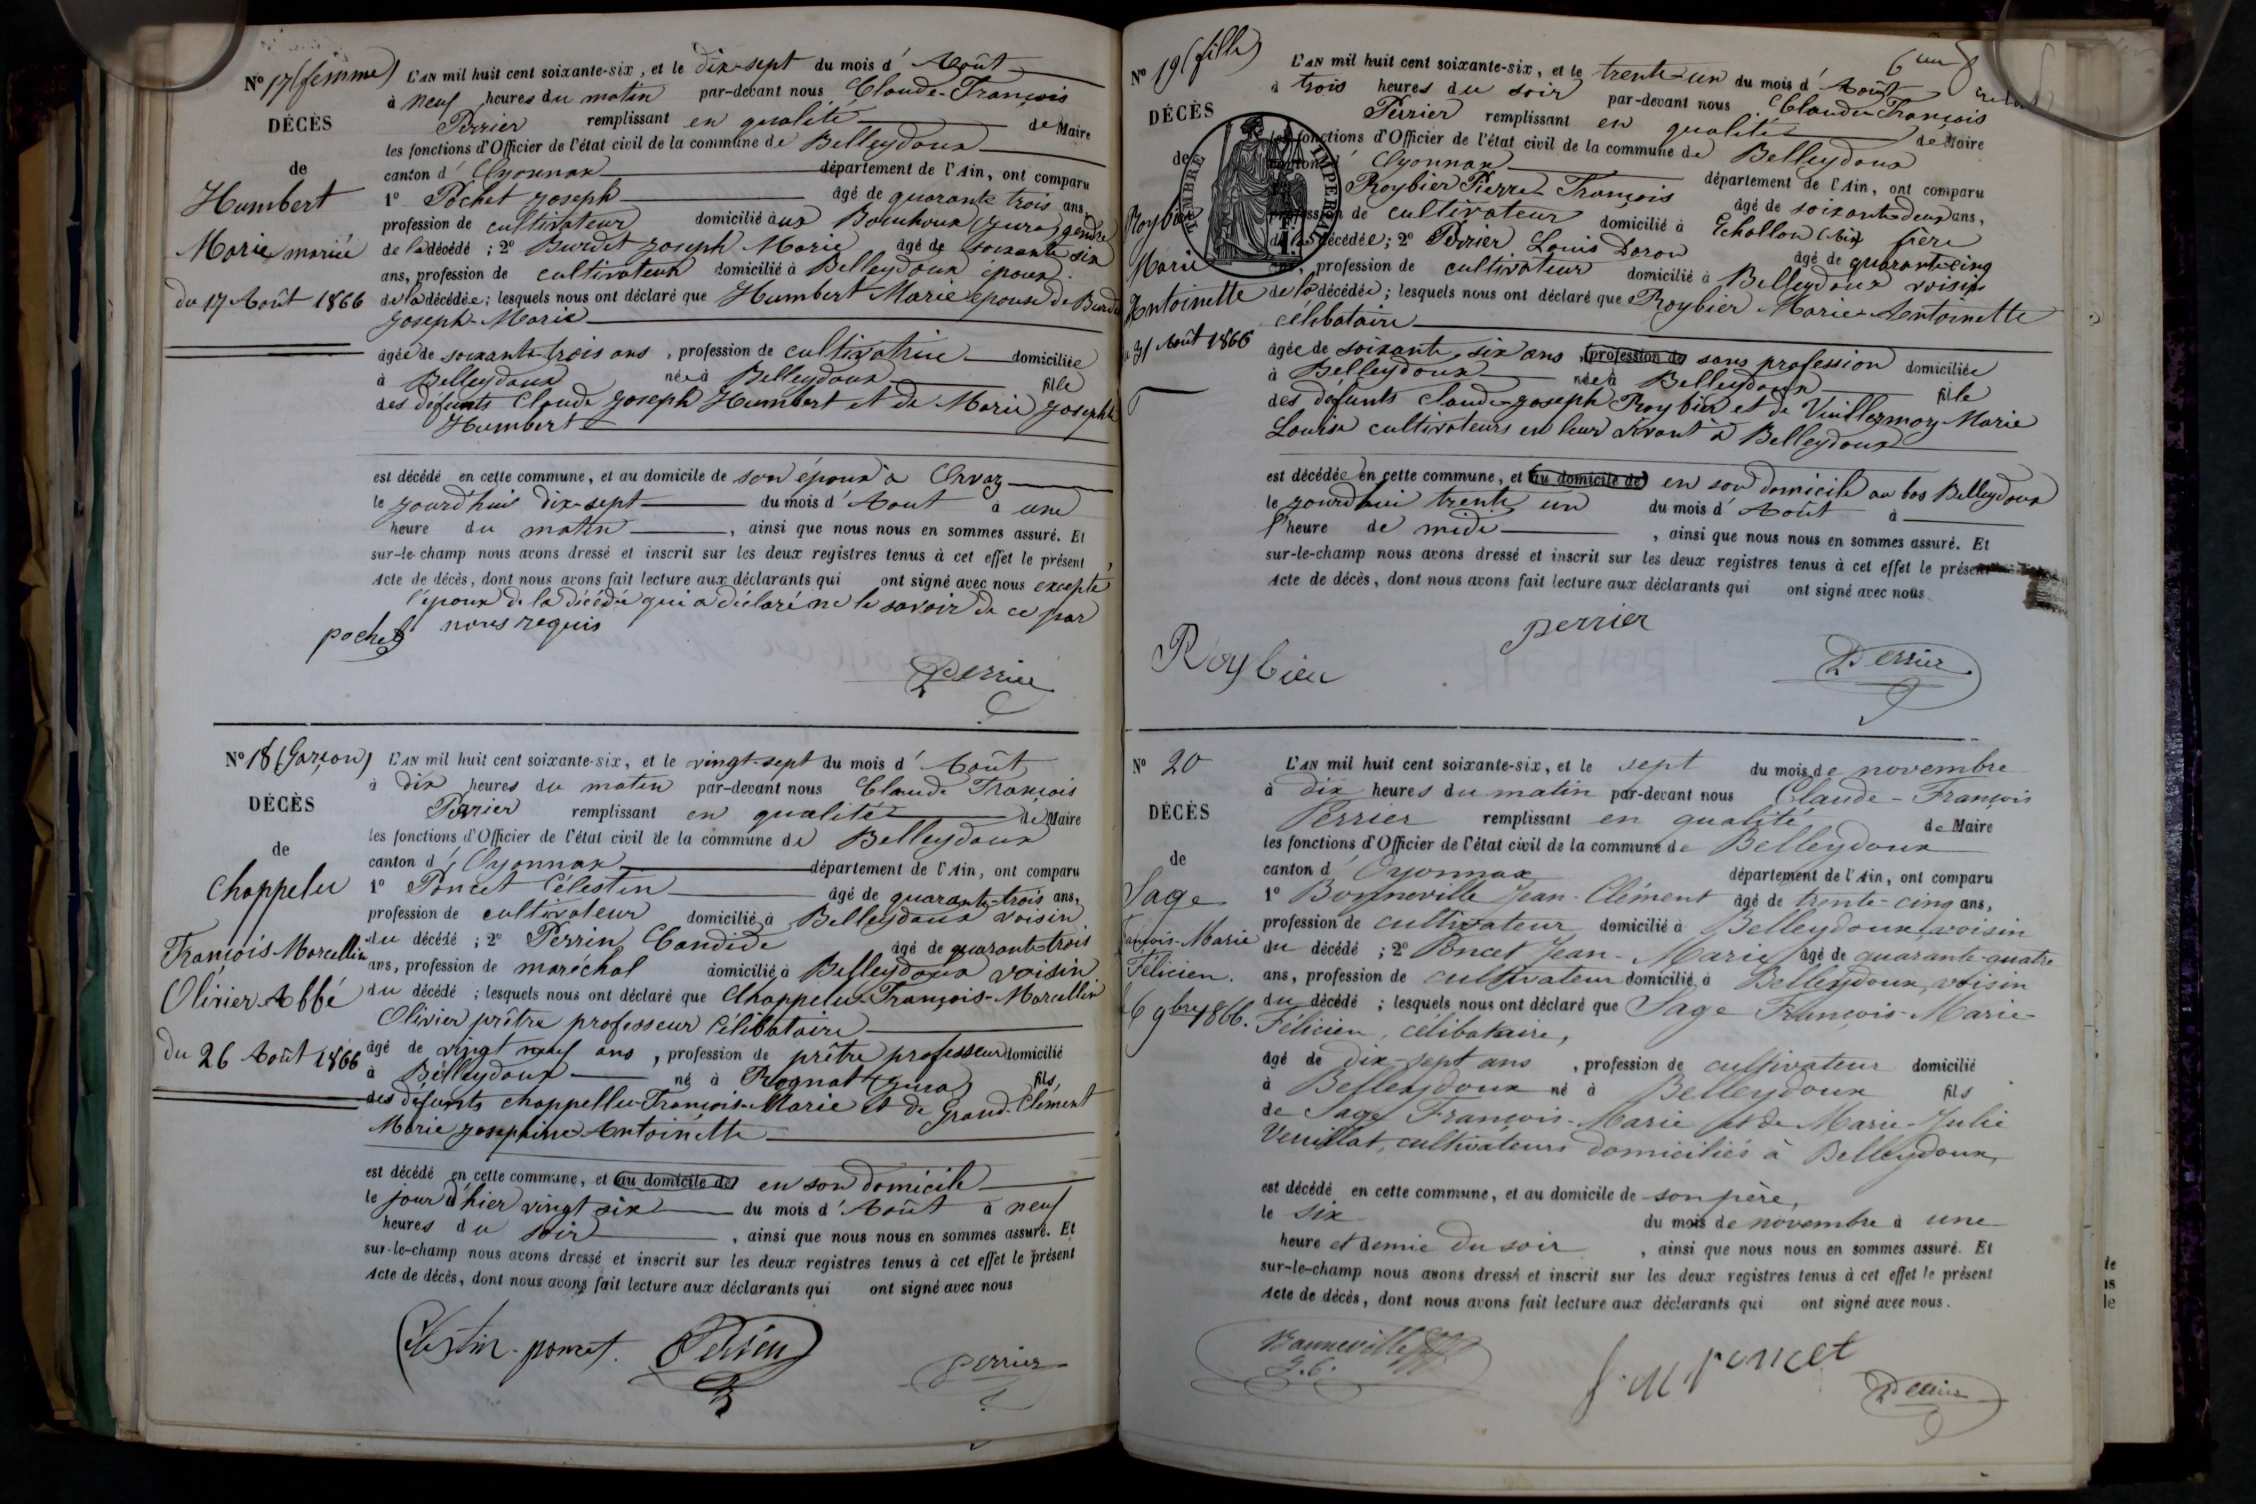 N° 17 (femme)
DÉCÈS
de
Humbert
Marie mariée
du 17 Août 1866
L'AN mil huit cent soixante-six, et le dix-sept du mois d'Août
à neuf heures du matin par-devant nous Claude-François
Perrier remplissant en qualité de Maire
les fonctions d'Officier de l'état civil de la commune de Belleydoux
canton d'Oyonnax département de l'Ain, ont comparu
1° Pochet Joseph âgé de quarante trois ans,
profession de cultivateur domicilié aux Bouchoux (Jura) gendre
de la décédé ; 2° Burdet Joseph Marie âgé de soixante six
ans, profession de cultivateur domicilié à Belleydoux époux
de la décédée ; lesquels nous ont déclaré que Humbert Marie épouse de Burdet
Joseph-Marie
âgée de soixante-trois ans, profession de cultivatrice domiciliée
à Belleydoux née à Belleydoux fille
des défunts Claude Joseph Humbert et de Marie Josephte
Humbert
est décédé en cette commune, et au domicile de son époux à Orvaz
le jourd'hui dix-sept du mois d'Août à une
heure du matin, ainsi que nous nous en sommes assuré. Et
sur-le-champ nous avons dressé et inscrit sur les deux registres tenus à cet effet le présent
Acte de décès, dont nous avons fait lecture aux déclarants qui ont signé avec nous excepté
l'époux de la décédée qui a déclaré ne le savoir de ce par
nous requis
pochet
Perrier
N° 18 (Garçon)
DÉCÈS
de
Chappelu
François-Marcellin
Olivier Abbé
du 26 Août 1866
L'AN mil huit cent soixante-six, et le vingt-sept du mois d'Août
à dix heures du matin par-devant nous Claude François
Perrier remplissant en qualité de Maire
les fonctions d'Officier de l'état civil de la commune de Belleydoux
canton d'Oyonnax département de l'Ain, ont comparu
1° Poncet Célestin âgé de quarante-trois ans,
profession de cultivateur domicilié à Belleydoux voisin
du décédé ; 2° Perrin Candide âgé de quarante-trois
ans, profession de maréchal domicilié à Belleydoux voisin
du décédé ; lesquels nous ont déclaré que Chappelu François-Marcellin
Olivier prêtre professeur Célibataire
âgé de vingt neuf ans, profession de prêtre professeur domicilié
à Belleydoux né à Rognat (Jura) fils
des défunts chappellu François-Marie et de Grand-Clément
Marie Josephine Antoinette
est décédé en cette commune, et au domicile de en son domicile
le jour d'hier vingt six du mois d'Août à neuf
heures du soir, ainsi que nous nous en sommes assuré. Et
sur-le-champ nous avons dressé et inscrit sur les deux registres tenus à cet effet le présent
Acte de décès, dont nous avons fait lecture aux déclarants qui ont signé avec nous
Célestin poncet. Perrin
perrier
N° 19 (fille)
DÉCÈS
de
Roybier
Marie
Antoinette
31 Août 1866
TIMBRE IMPÉRIAL
L'AN mil huit cent soixante-six, et le trente-un du mois d'Août
à trois heures du soir par-devant nous Claude-François
Perrier remplissant en qualité de Maire
les fonctions d'Officier de l'état civil de la commune de Belleydoux
canton d'Oyonnax département de l'Ain, ont comparu
Roybier Pierre François âgé de soixante-deux ans,
profession de cultivateur domicilié à Echallon (Ain) frère
de la décédée ; 2° Perrier Louis Doron âgé de quarante-cinq
ans, profession de cultivateur domicilié à Belleydoux voisin
de la décédée ; lesquels nous ont déclaré que Roybier Marie-Antoinette
célibataire
âgée de soixante six ans, profession de sans profession domiciliée
à Belleydoux née à Belleydoux fille
des défunts claude-joseph Roybier et de Vuillermoz Marie
Louise cultivateurs en leur vivant à Belleydoux
est décédée en cette commune, et au domicile de en son domicile au bas Belleydoux
le jourd'hui trente un du mois d'Août à
l'heure de midi, ainsi que nous nous en sommes assuré. Et
sur-le-champ nous avons dressé et inscrit sur les deux registres tenus à cet effet le présent
Acte de décès, dont nous avons fait lecture aux déclarants qui ont signé avec nous
perrier
Roybier
Perrier
N° 20
DÉCÈS
de
Sage
François-Marie
Félicien.
6 9bre 1866.
L'AN mil huit cent soixante-six, et le sept du mois de novembre
à dix heures du matin par-devant nous Claude-François
Perrier remplissant en qualité de Maire
les fonctions d'Officier de l'état civil de la commune de Belleydoux
canton d'Oyonnax département de l'Ain, ont comparu
1° Bonneville Jean-Clément âgé de trente-cinq ans,
profession de cultivateur domicilié à Belleydoux, voisin
du décédé ; 2° Poncet Jean-Marie âgé de quarante-quatre
ans, profession de cultivateur domicilié à Belleydoux, voisin
du décédé ; lesquels nous ont déclaré que Sage François-Marie-
Félicien, célibataire,
âgé de dix-sept ans, profession de cultivateur domicilié
à Belleydoux né à Belleydoux fils
de Sage François-Marie et de Marie-Julie
Venillat, cultivateurs domiciliés à Belleydoux,
est décédé en cette commune, et au domicile de son père,
le six du mois de novembre à une
heure et demie du soir, ainsi que nous nous en sommes assuré. Et
sur-le-champ nous avons dressé et inscrit sur les deux registres tenus à cet effet le présent
Acte de décès, dont nous avons fait lecture aux déclarants qui ont signé avec nous.
Bonneville
J. C.
J. M poncet
Perrier